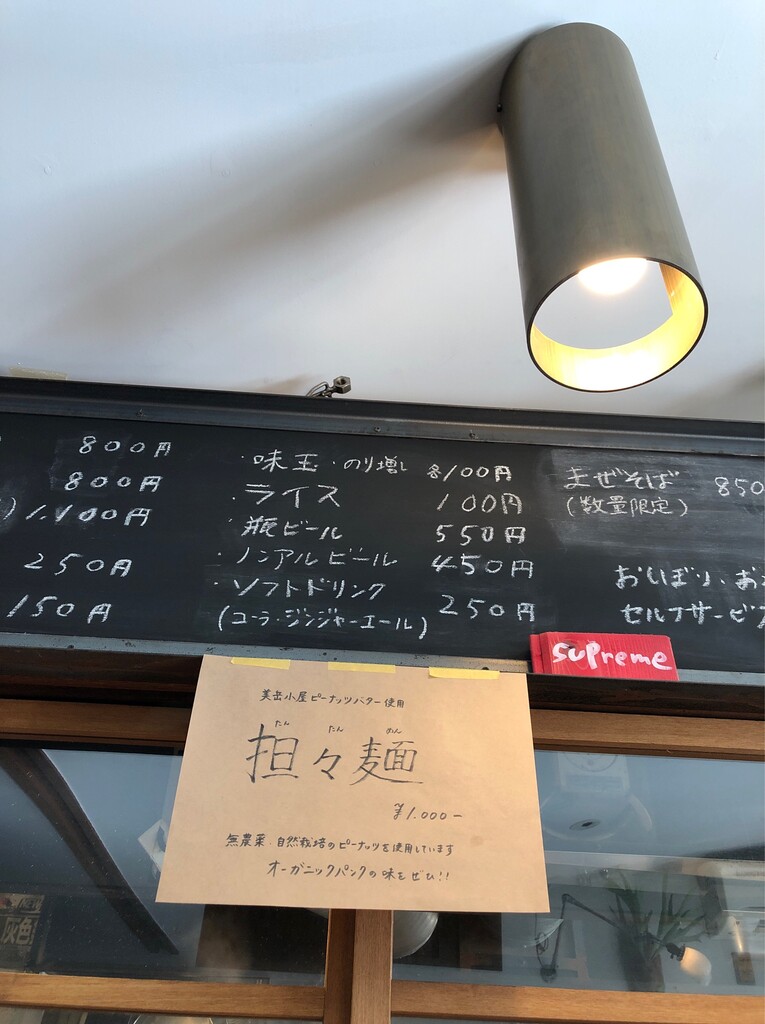 800円
800円
1,100円
250円
150円
・味玉・のり増し 各100円
・ライス 100円
・瓶ビール 550円
・ノンアルビール 450円
・ソフトドリンク
(コーラ・ジンジャーエール) 250円
まぜそば 850
(数量限定)
おしぼり・お
セルフサービス
supreme
美岳小屋ピーナッツバター使用
たん たん めん
担々麺
¥1.000-
無農薬・自然栽培のピーナッツを使用しています
オーガニックパンクの味をぜひ!!
灰色